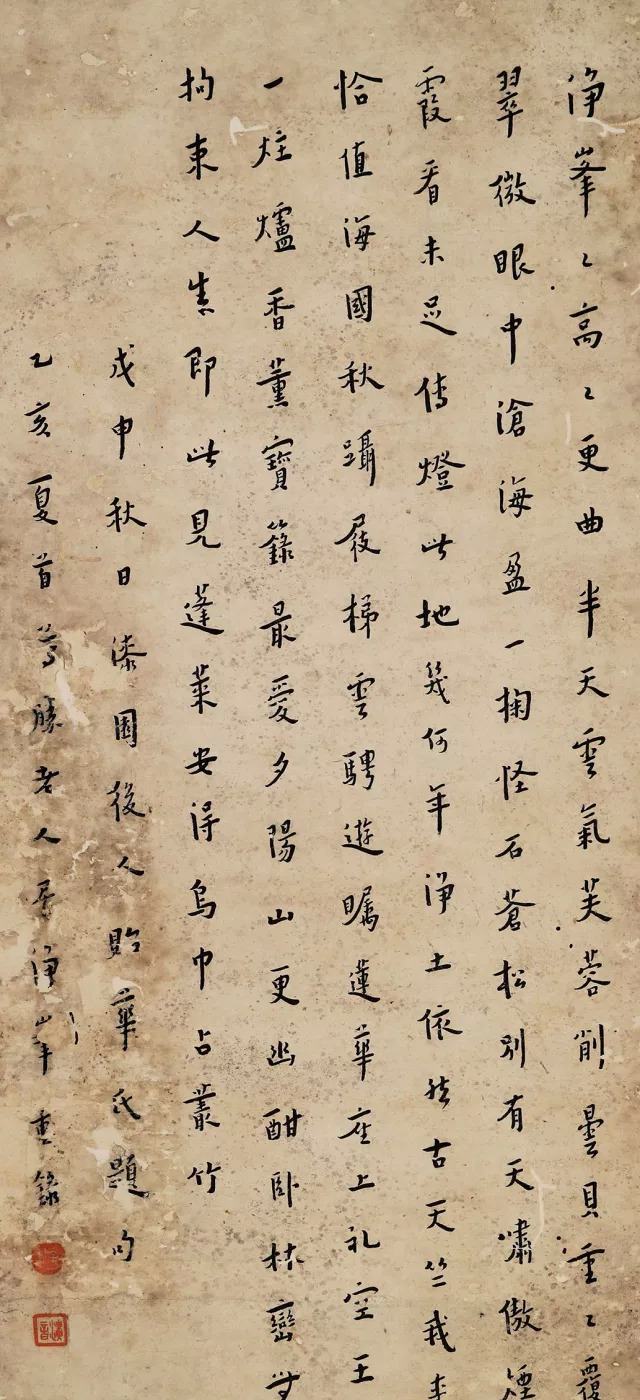 淨峯〻高〻更曲半天雲氣芙蓉削曇貝重〻覆
翠微眼中滄海盈一掬怪石蒼松別有天嘯傲煙
霞看未足傳燈此地幾何年淨土依然古天竺我來
恰值海國秋躡屐梯雲騁遊矚蓮華座上礼空王
一炷爐香薰寶籙最愛夕陽山更幽酣卧林巒
拘束人生即此見蓬萊安得烏巾占叢竹
戊申秋日漆園後人貽華氏題句
乙亥夏首尊勝老人居淨峯重錄